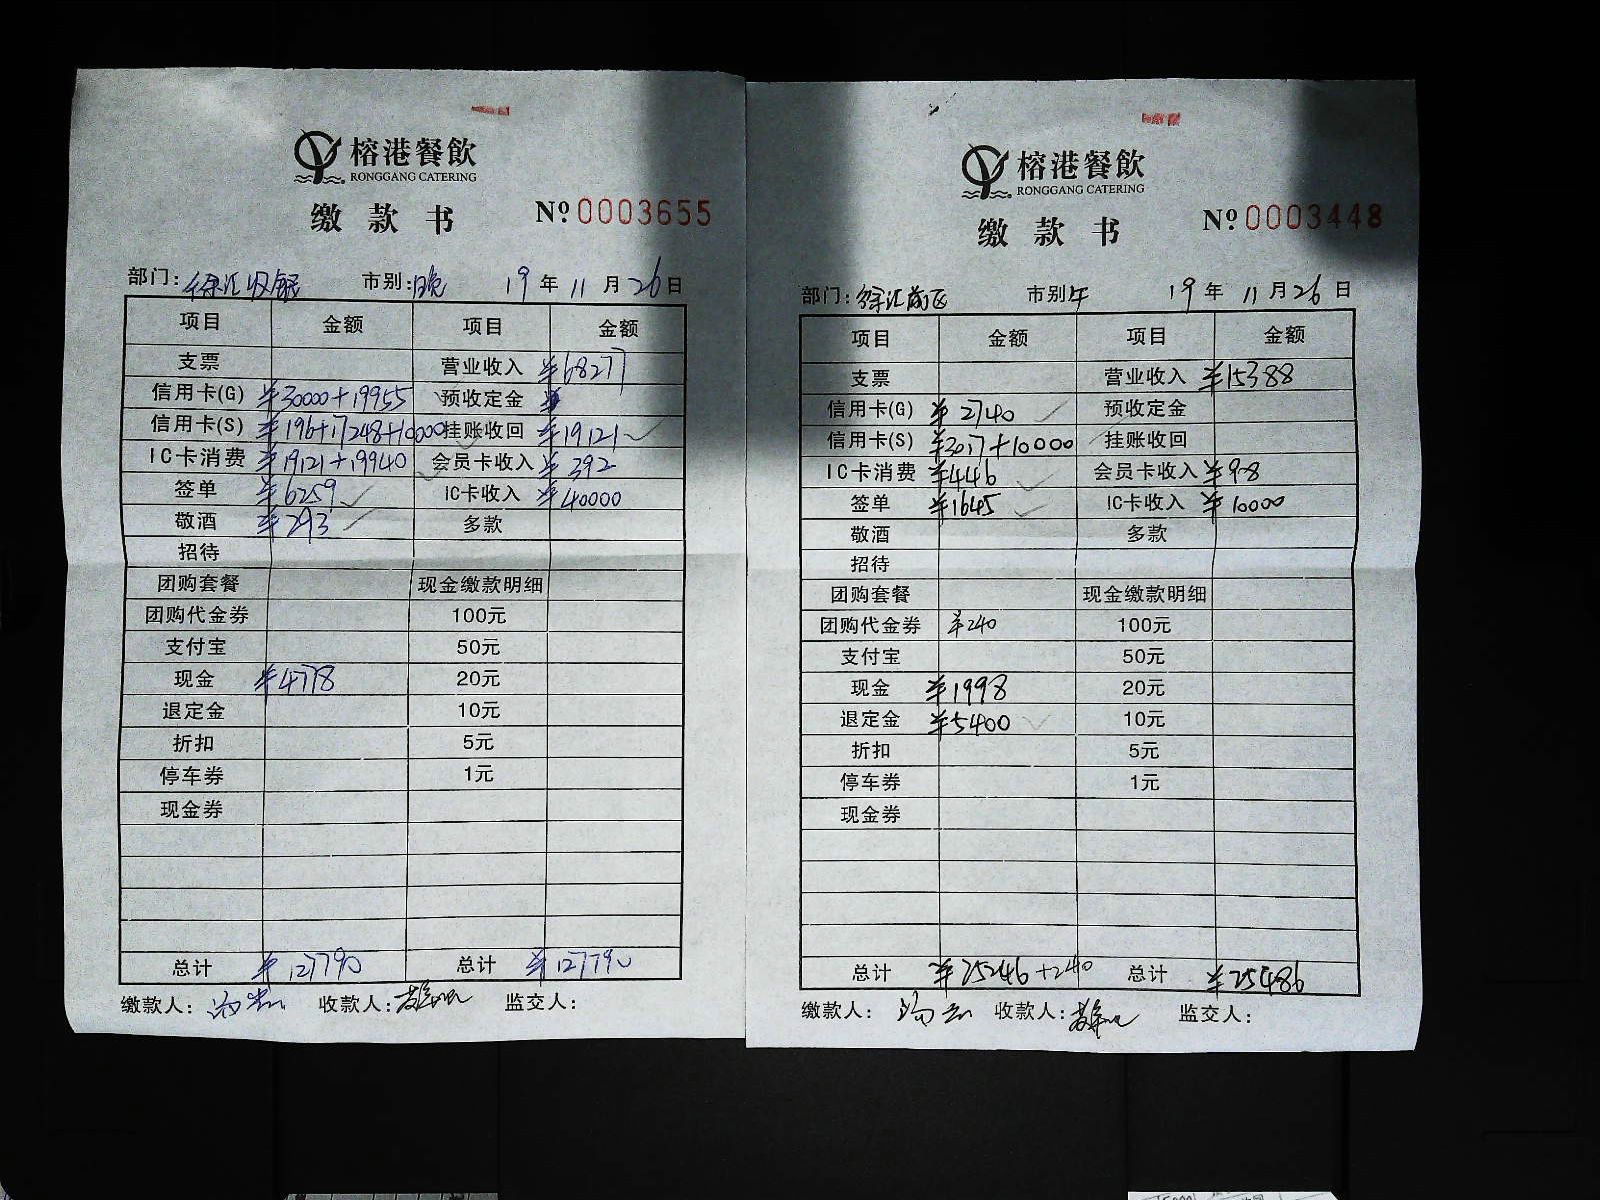 榕港餐飲
RONGGANG CATERING
缴款书 Nº 0003655
部门: 徐汇收银 市别: 晚 19 年 11 月 26 日
项目 金额 项目 金额
支票 营业收入 ¥68277
信用卡(G) ¥30000+19955 预收定金 ¥
信用卡(S) ¥196+17248+10000 挂账收回 ¥19121
IC卡消费 ¥19121+19940 会员卡收入 ¥392
签单 ¥6259 IC卡收入 ¥40000
敬酒 ¥293 多款
招待
团购套餐 现金缴款明细
团购代金券 100元
支付宝 50元
现金 ¥4778 20元
退定金 10元
折扣 5元
停车券 1元
现金券
总计 ¥127790 总计 ¥127790
缴款人: 收款人: 监交人:
榕港餐飲
RONGGANG CATERING
缴款书 Nº 0003448
部门: 徐汇前区 市别 午 19 年 11 月 26 日
项目 金额 项目 金额
支票 营业收入 ¥15388
信用卡(G) ¥2740 预收定金
信用卡(S) ¥3017+10000 挂账收回
IC卡消费 ¥446 会员卡收入 ¥98
签单 ¥1645 IC卡收入 ¥10000
敬酒 多款
招待
团购套餐 现金缴款明细
团购代金券 ¥240 100元
支付宝 50元
现金 ¥1998 20元
退定金 ¥5400 10元
折扣 5元
停车券 1元
现金券
总计 ¥25246+240 总计 ¥25486
缴款人: 收款人: 监交人: